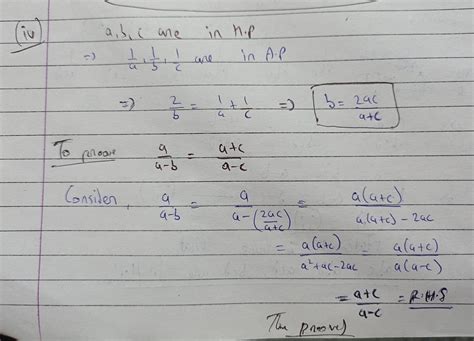 (iv) a, b, c are in H.P
=> 1/a, 1/b, 1/c are in A.P
=> 2/b = 1/a + 1/c => b = 2ac/(a+c)
To proove a/(a-b) = (a+c)/(a-c)
Consider, a/(a-b) = a/(a-(2ac/(a+c))) = a(a+c)/(a(a+c)-2ac)
= a(a+c)/(a²+ac-2ac) = a(a+c)/(a(a-c))
= (a+c)/(a-c) = R.H.S